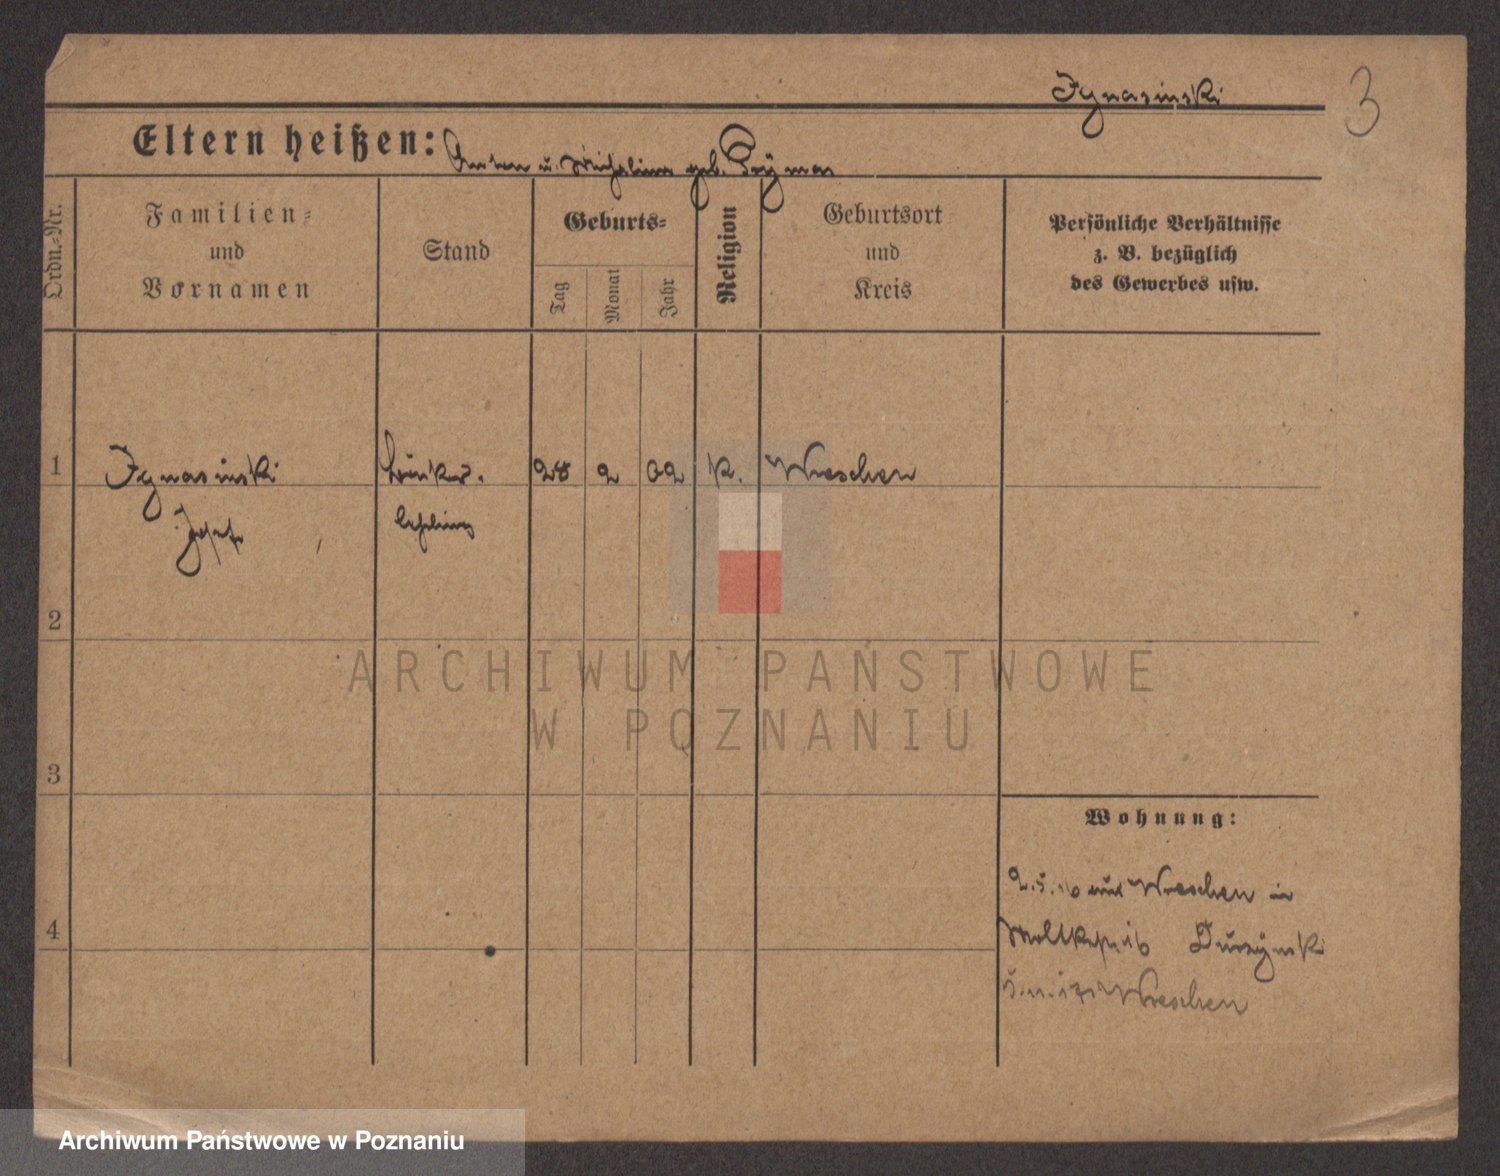 Ignasinski
3
Eltern heißen: Anton u. Michalina geb. Prymas
Ordn.=Nr.
Familien=
und
Vornamen
Stand
Geburts=
Tag
Monat
Jahr
Religion
Geburtsort
und
Kreis
Persönliche Verhältnisse
z. B. bezüglich
des Gewerbes usw.
1
Ignasinski 28 2 02 K. Wreschen
Josef
2
3
4
Wohnung:
Wreschen in
Moltkestr. 16
Wreschen
ARCHIWUM PAŃSTWOWE
W POZNANIU
Archiwum Państwowe w Poznaniu